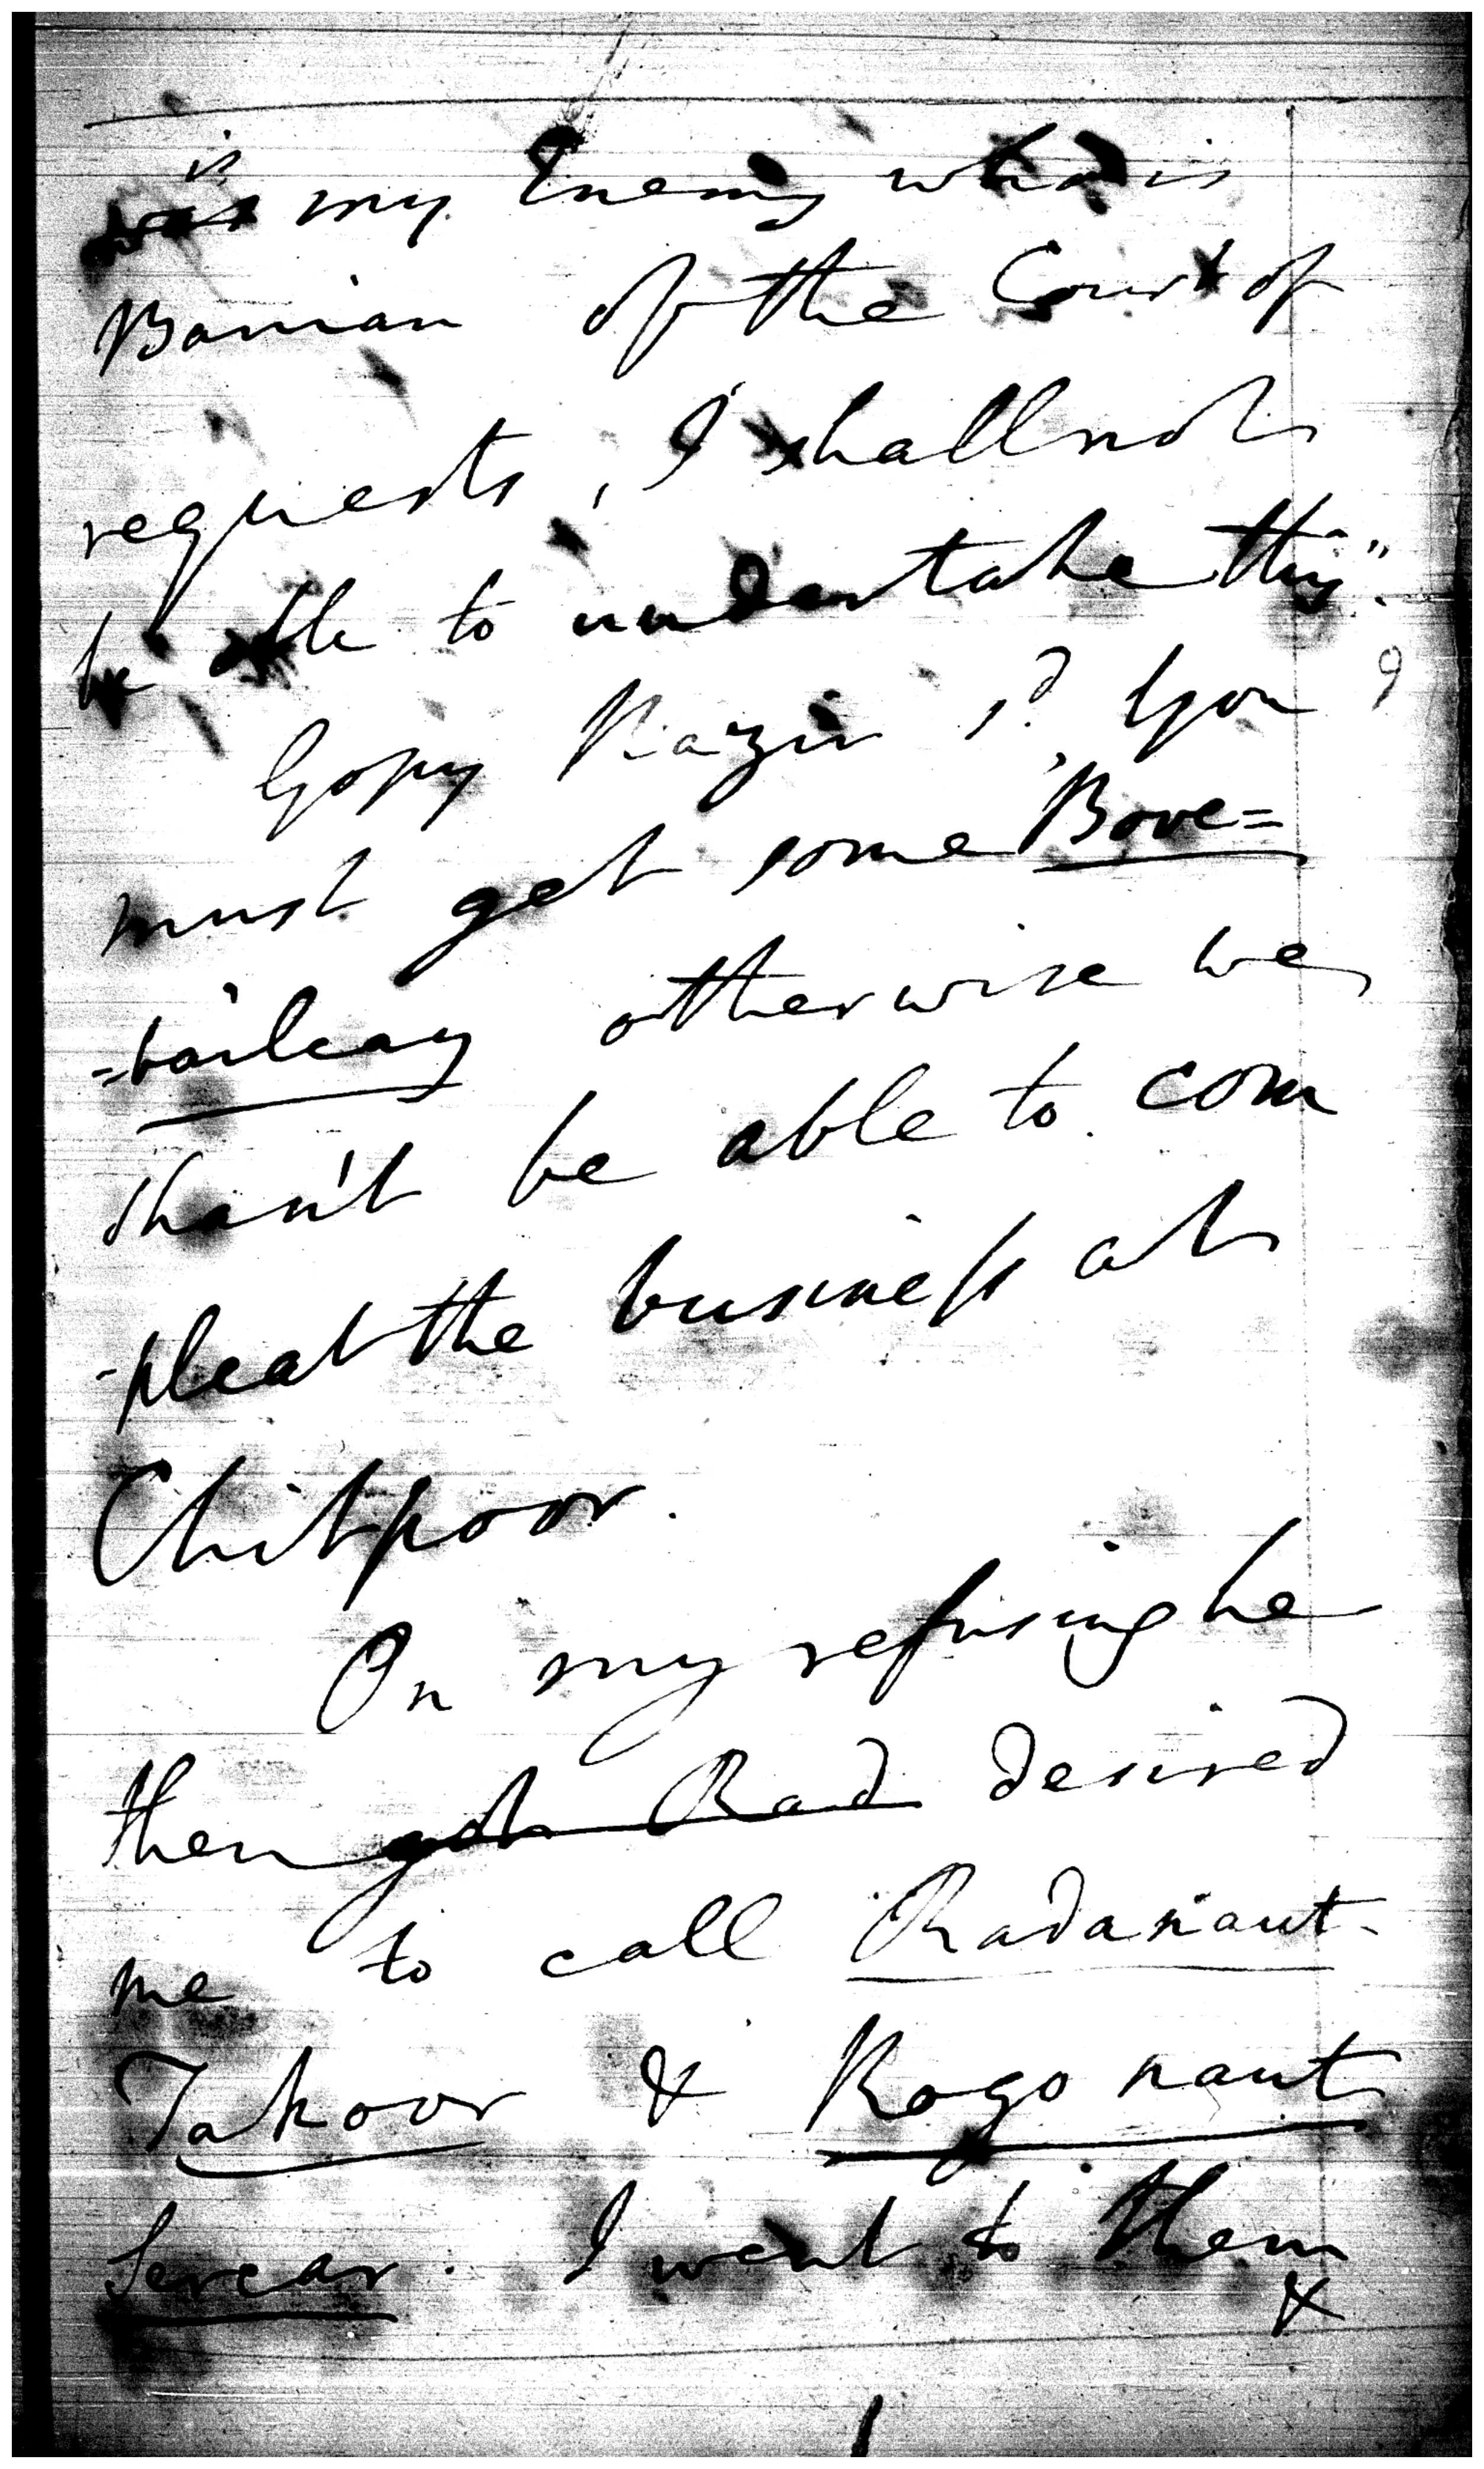 is
was my Enemy who is
Banian of the Court of
requests, I shall not
be able to undertake this".
Gopy Nazir sd. "you
must get some Bove=
=bailcay otherwise we
shan't be able to com
-pleat the business at
Chitpoor.
On my refusing he
then got Rad desired
me to call Radanaut
Takoor & Rogonaut
Sercar. I went to them
&